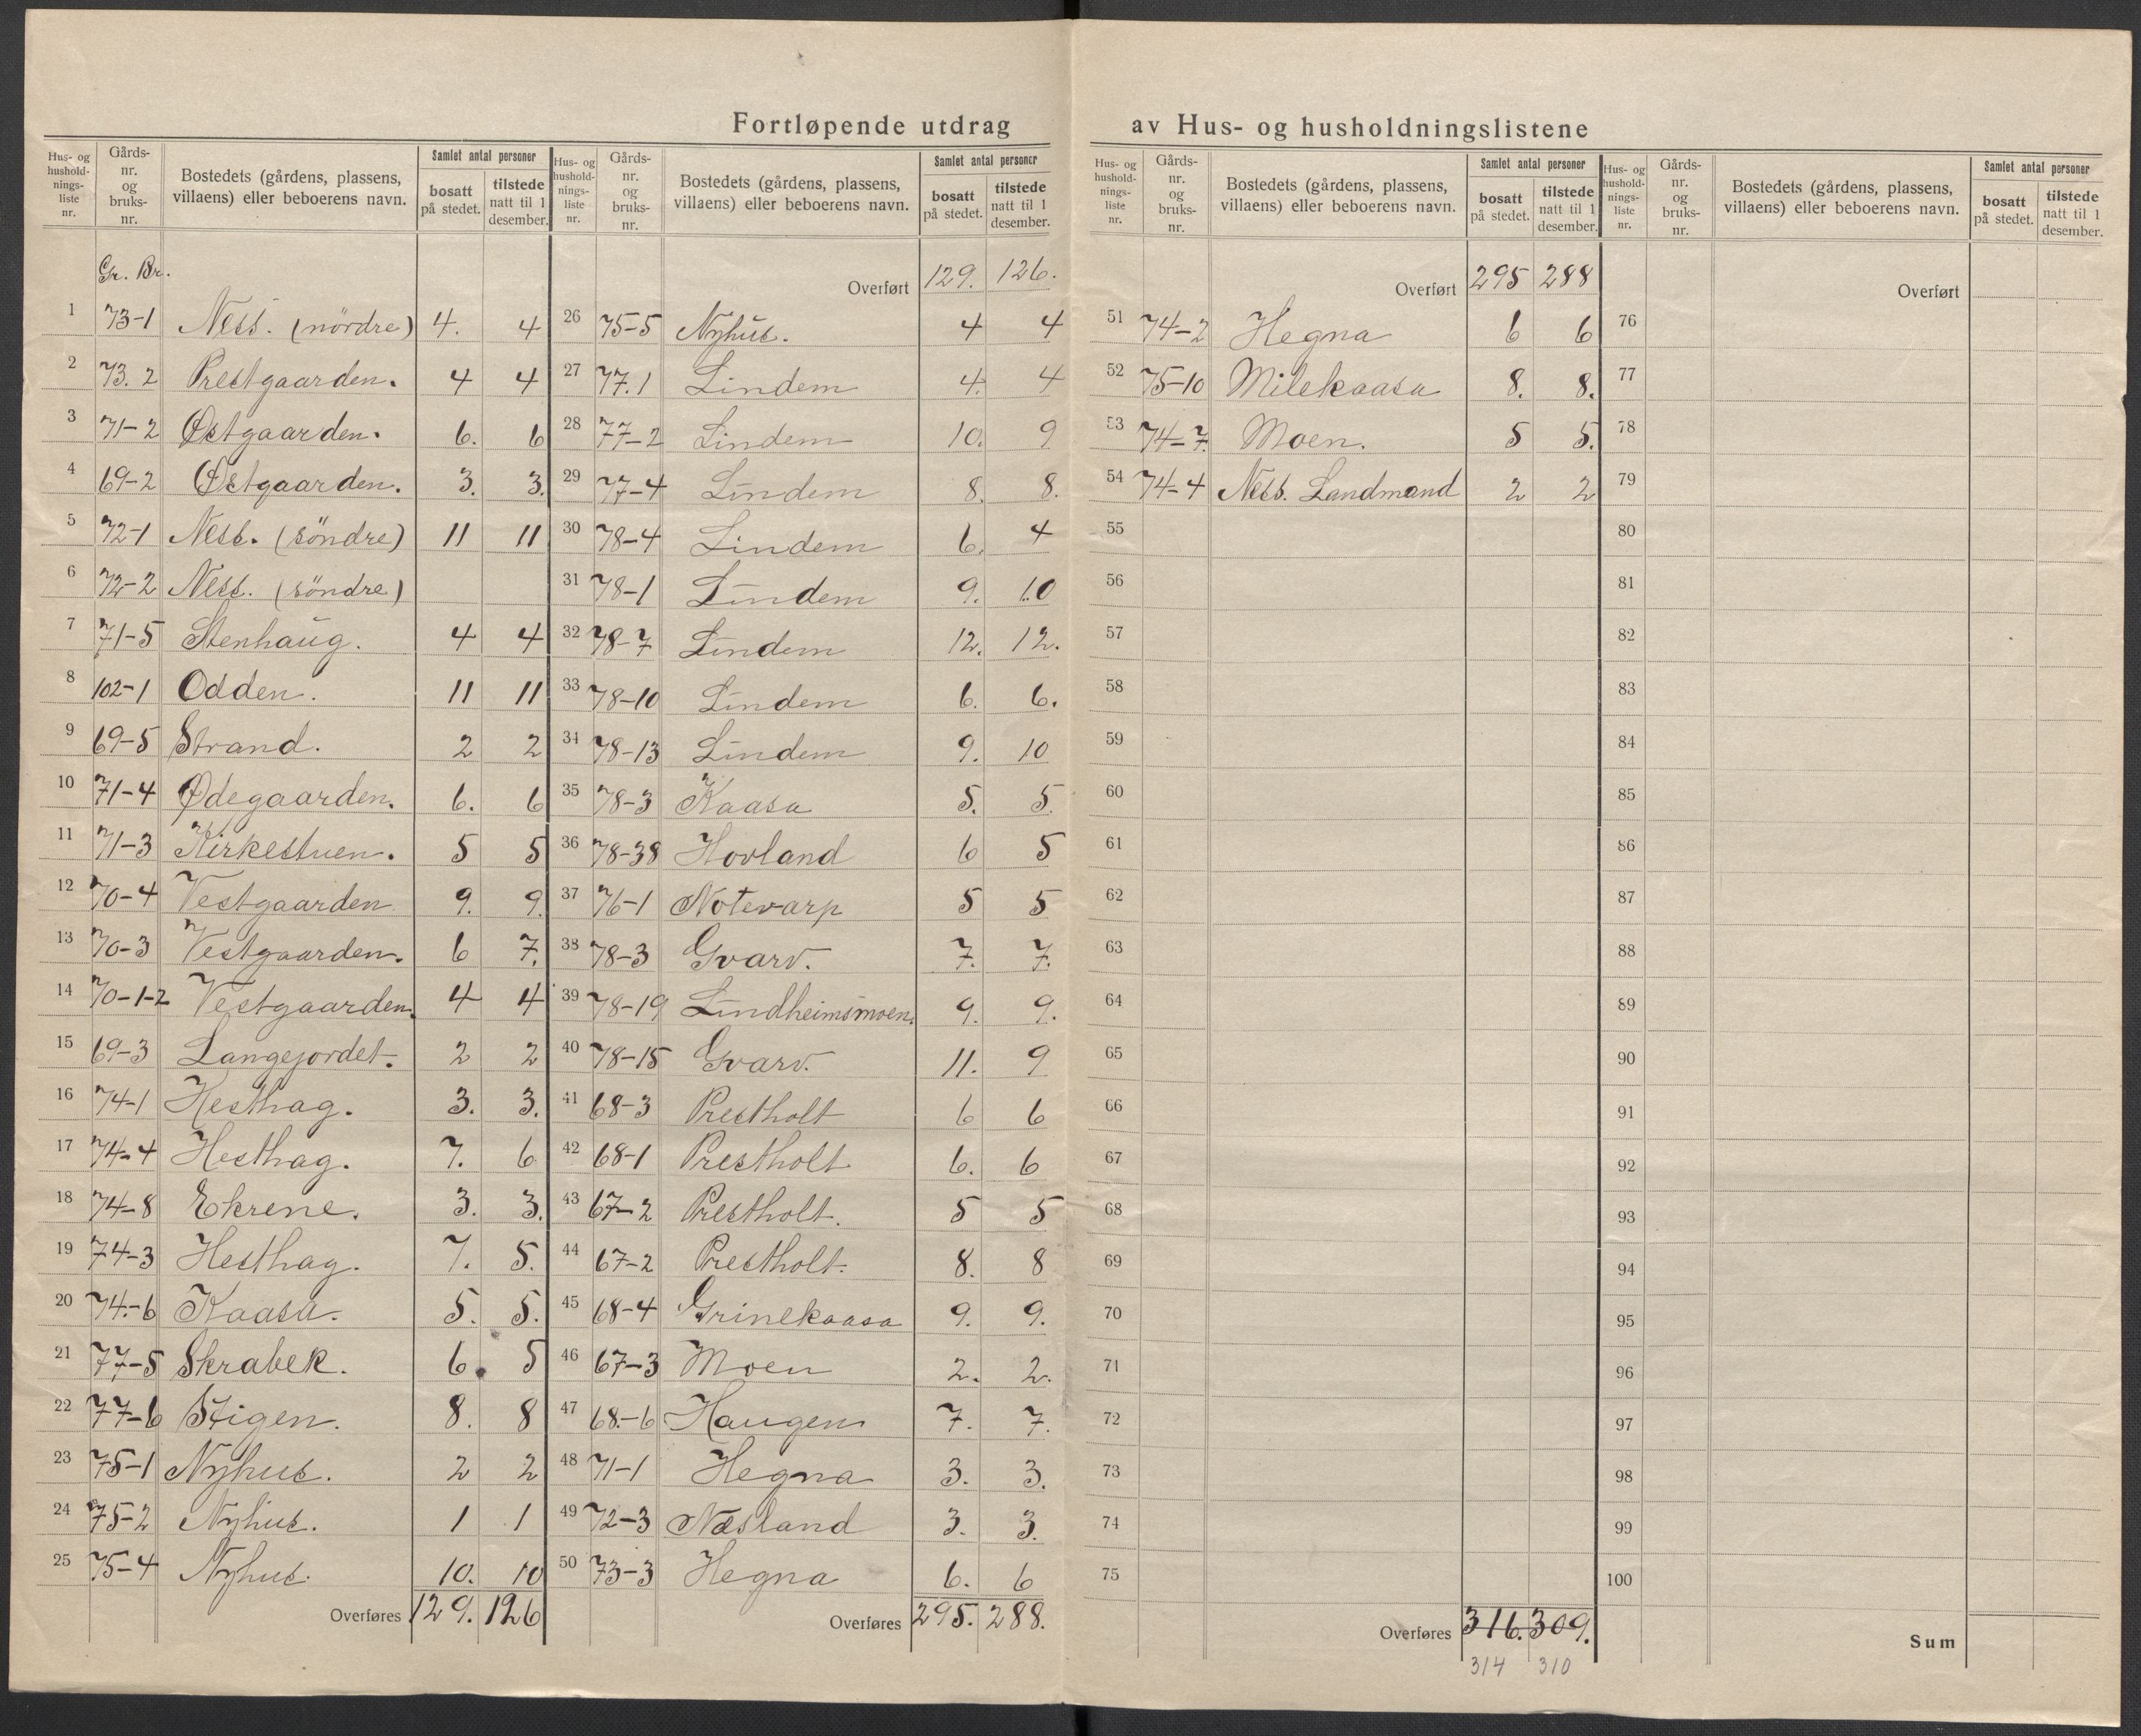 Fortløpende utdrag av Hus- og husholdningslistene
Hus- og hushold-nings-liste nr. Gårds-nr. og bruks-nr. Bostedets (gårdens, plassens, villaens) eller beboerens navn. Samlet antal personer bosatt på stedet. tilstede natt til 1 desember.
Gr. Br.
1 73-1 Ness. (nördre) 4. 4
2 73.2 Prestgaarden. 4 4
3 71-2 Østgaarden. 6. 6
4 69-2 Østgaarden. 3. 3.
5 72-1 Ness. (söndre) 11 11
6 72-2 Ness. (söndre)
7 71-5 Stenhaug. 4 4
8 102-1 Odden. 11 11
9 69-5 Strand. 2 2
10 71-4 Ødegaarden. 6. 6
11 71-3 Kirkestuen. 5 5
12 70-4 Vestgaarden 9. 9.
13 70-3 Vestgaarden. 6 7.
14 70-1-2 Vestgaarden. 4 4
15 69-3 Langejordet. 2 2
16 74-1 Hesthag. 3. 3.
17 74-4 Hesthag. 7. 6
18 74-8 Ekrene. 3. 3.
19 74-3 Hesthag. 7. 5.
20 74-6 Kaasa. 5. 5.
21 77-5 Skrabek. 6. 5
22 77-6 Stigen. 8. 8
23 75-1 Nyhus. 2 2
24 75-2 Nyhus. 1 1
25 75-4 Nyhus. 10. 10
Overføres 129. 126
Hus- og hushold-nings-liste nr. Gårds-nr. og bruks-nr. Bostedets (gårdens, plassens, villaens) eller beboerens navn. Samlet antal personer bosatt på stedet. tilstede natt til 1 desember.
Overført 129. 126.
26 75-5 Nyhus. 4 4
27 77.1 Lindem 4. 4
28 77-2 Lindem 10. 9
29 77-4 Lindem 8. 8.
30 78-4 Lindem 6. 4
31 78-1 Lindem 9. 10
32 78-7 Lindem 12. 12.
33 78-10 Lindem 6. 6.
34 78-13 Lindem 9. 10
35 78-3 Kaasa 5. 5
36 78-38 Hovland 6 5
37 76-1 Notevarp 5 5
38 78-3 Gvarv. 7. 7.
39 78-19 Lindheimsmoen. 9. 9.
40 78-15 Gvarv. 11. 9
41 68-3 Prestholt 6 6
42 68-1 Prestholt 6. 6
43 67-2 Prestholt. 5 5
44 67-2 Prestholt. 8. 8
45 68-4 Grinekaasa 9. 9.
46 67-3 Moen 2. 2.
47 68-6 Haugen 7. 7.
48 71-1 Hegna 3. 3.
49 72-3 Næsland 3. 3.
50 73-3 Hegna 6. 6
Overføres 295. 288.
Hus- og hushold-nings-liste nr. Gårds-nr. og bruks-nr. Bostedets (gårdens, plassens, villaens) eller beboerens navn. Samlet antal personer bosatt på stedet. tilstede natt til 1 desember.
Overført 295 288
51 74-2 Hegna 6 6
52 75-10 Milekaasa 8. 8.
53 74-7 Moen. 5 5.
54 74-4 Ness. Landmand 2 2
55
56
57
58
59
60
61
62
63
64
65
66
67
68
69
70
71
72
73
74
75
Overføres 316. 309.
314 310
Hus- og hushold-nings-liste nr. Gårds-nr. og bruks-nr. Bostedets (gårdens, plassens, villaens) eller beboerens navn. Samlet antal personer bosatt på stedet. tilstede natt til 1 desember.
Overført
76
77
78
79
80
81
82
83
84
85
86
87
88
89
90
91
92
93
94
95
96
97
98
99
100
Sum